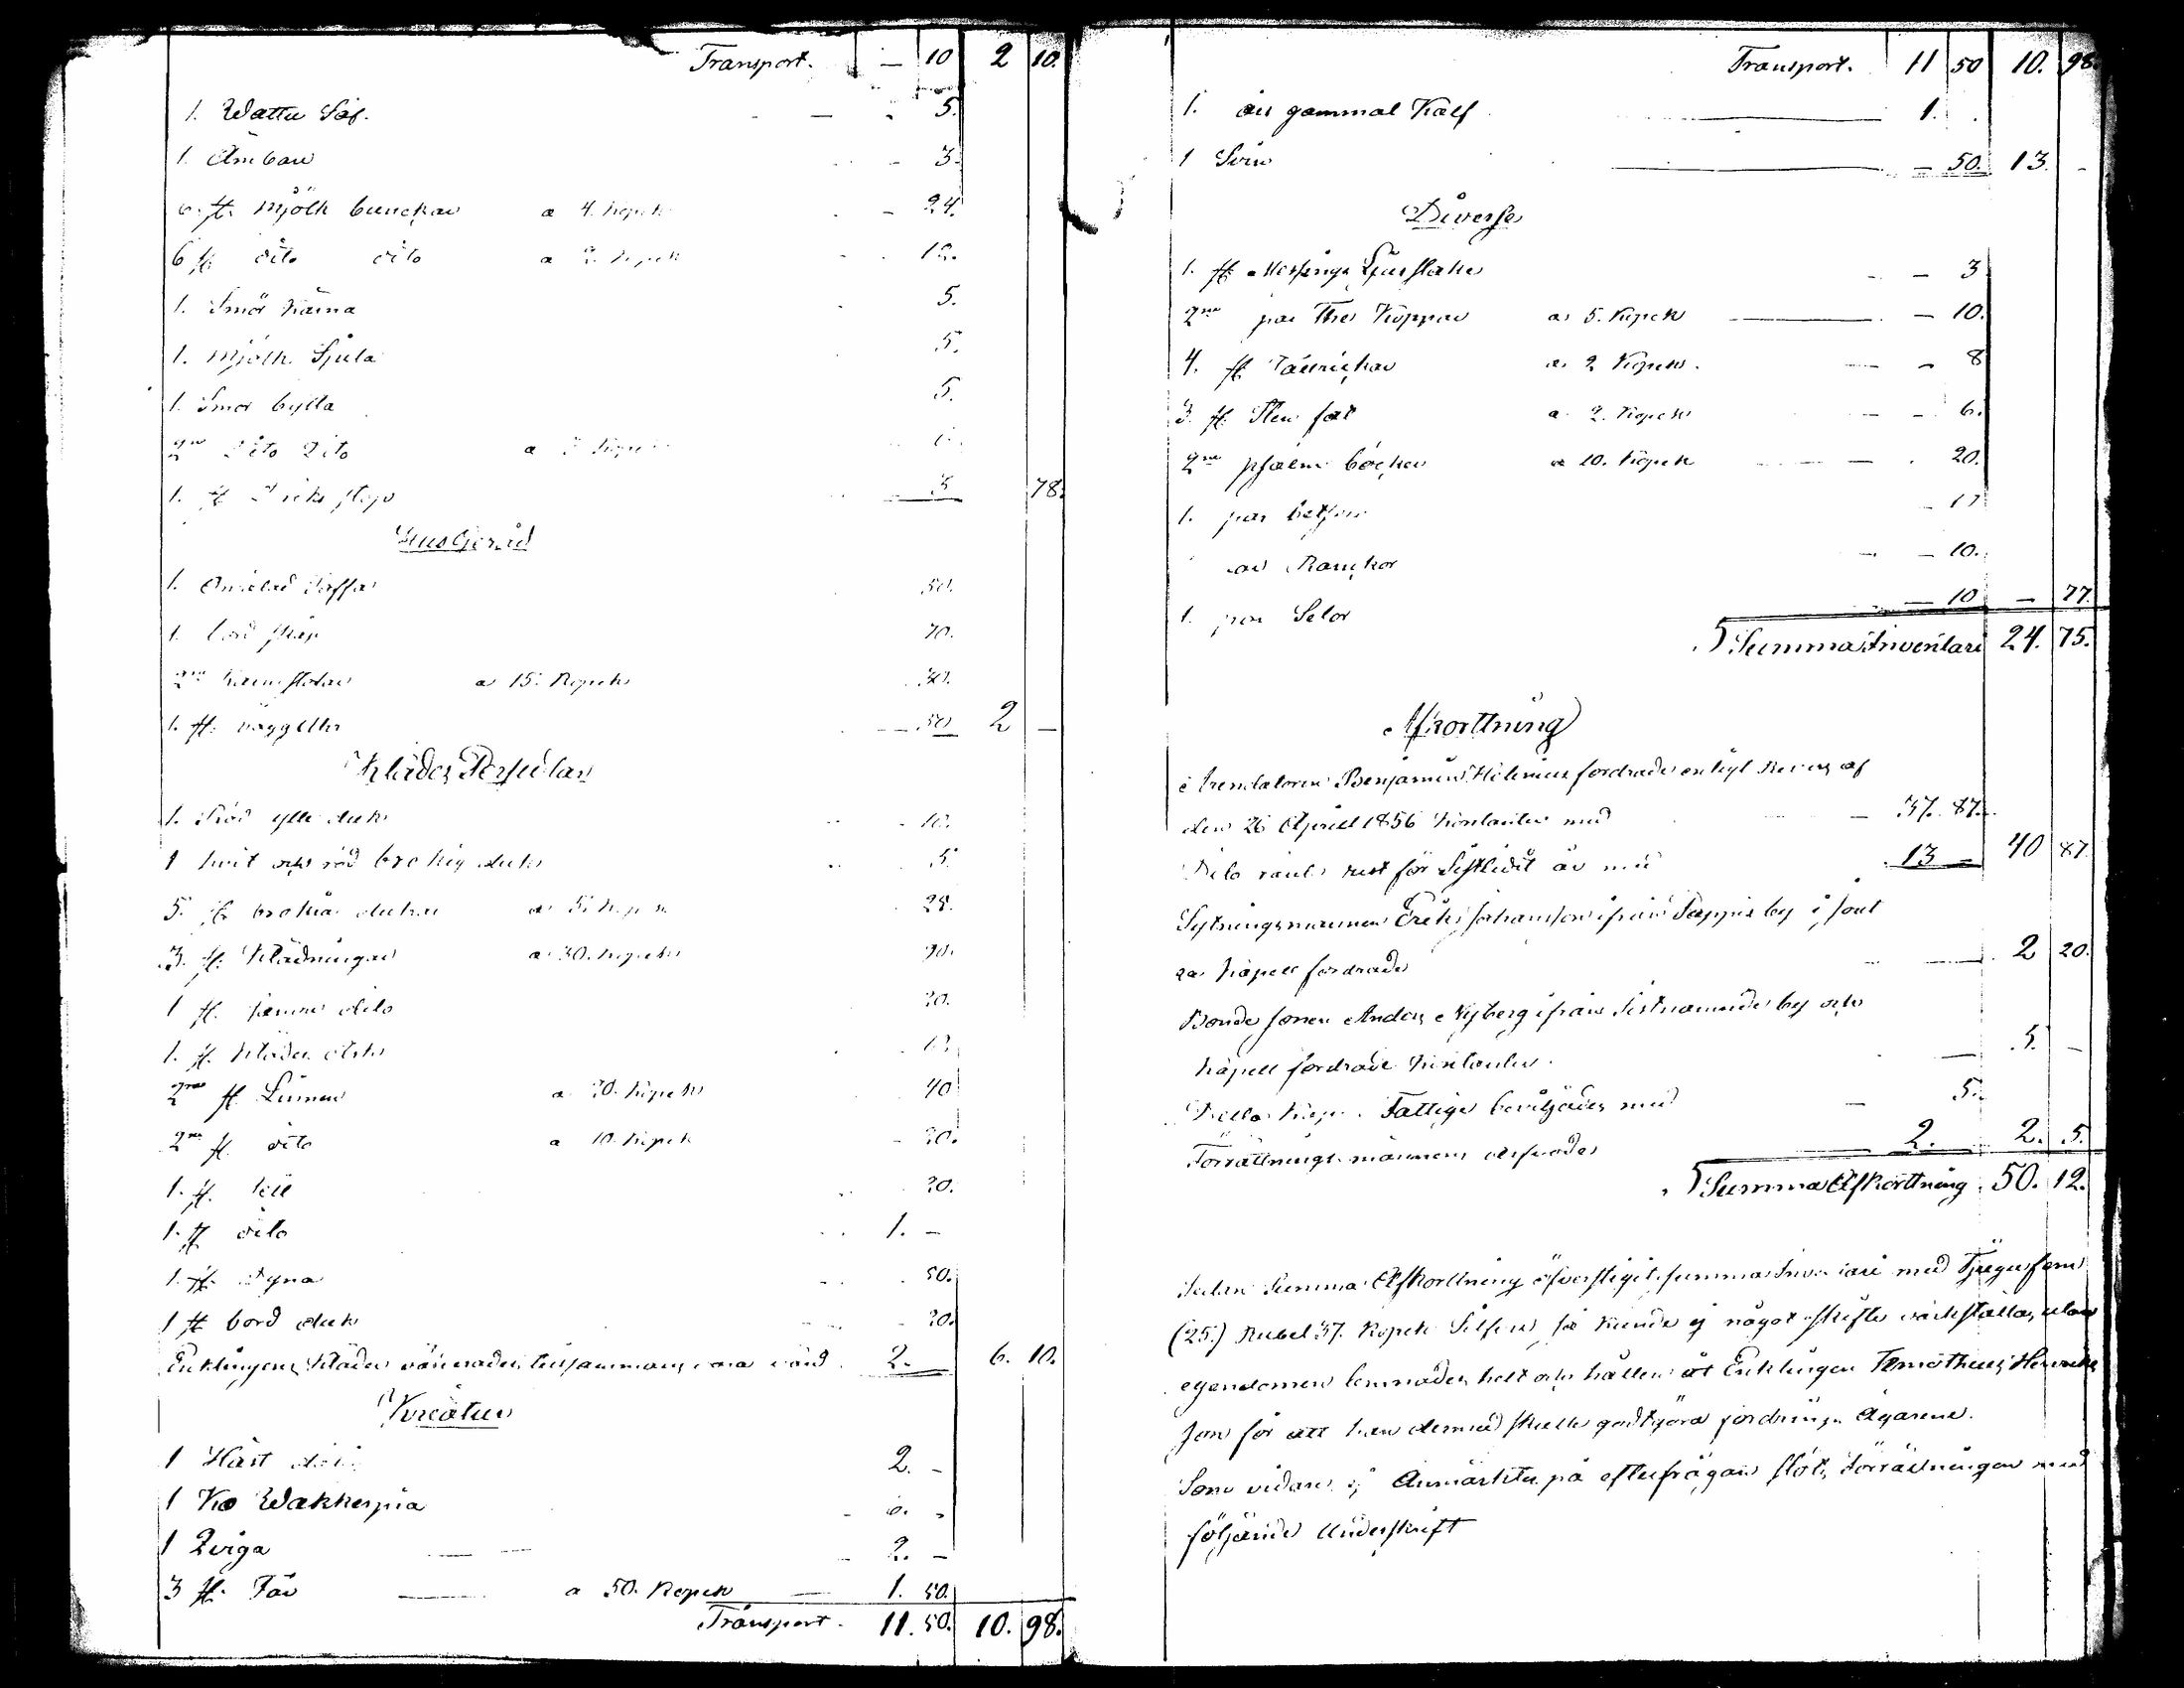 Transport. — 10 2 10.
1. Wattu Såf. 5.
1. Ämbare 3.
6. st. Mjölk bunckar a 4. Kopek 24.
6 st. dito dito a 2. Kopek 12.
1. Smör Kärna 5.
1. Mjölk Sjula 5.
1. Smör bytta 5.
2ne Dito Dito a Kopek
1. st stop 78.
Husgeråd
1. Omålad Soffa 50.
1. bord skåp 70.
2ne stolar a 15. Kopek 30.
1. st. väggUhr 50 2 —
Kläder Persedlar
1. Röd ylle duk 10.
1 hvit och röd brokig duk 5.
5. st brokia dukar a 5. Kopek 25.
3. st. Klädningar a 30. Kopek 90.
1 st. sämre dito 20.
1. st. Kläde
2ne st Linnen a 20. Kopek 40
2ne st. dito a 10. Kopek 20.
1. st. 20.
1. st dito 1. —
1. st. Dyna 50.
1 st bord duk 20.
Enklingens Kläder värderades tillsammans vara värd 2. 6. 10.
Kreatur
1 Häst 2. —
1 Ko Wakkerpia
1 Qviga 2. —
3 st. Får a 50. Kopek 1. 50.
Transport. 11. 50. 10. 98.
Transport. 11 50 10. 98.
1. års gammal Kalf 1.
1 Svin — 50. 13. -
Diverse
1. st Messings Ljusstake — 3
2ne par The Koppar a 5. Kopek — 10.
4. st Tallrickar a 2 Kopek. — 8
3 st. Sten fat a 2. Kopek — 6.
2ne psalm böcker a 10. Kopek 20.
1. par betsen
10.
1. par Selar — 10 — 77.
Summa Inventari 24. 75.
Afkorttning
Arendatoren Benjamin fordrade enligt Revers af
den 26 April 1856 med — 37. 87.
Dito rest för Sistledit år med 13 — 40 87.
Sytningsmannen Erik Johansson ifrån by i
Kapell fordrade 2 20.
Bonde sonen Anders Nyberg ifrån Sistnamnde by och
Kapell fordrade 5. —
Fattige beviljades med — 5.
Förrättnings männens 2. 2. 5.
Summa Afkorttning 50. 12.
Sedan Summa Afkorttning öfverstigit summa Inventari med Tjugufem
(25.) Rubel 37. Kopek Silfver, så kunde ej något skifte värkställas, utan
egendomen lemnades helt och hållen åt Enklingen Timotheus
son för att han dermed skulle godtgöra fordrings Ägarene.
Som vidare ej Anmärktes på efterfrågan slöts Förrättningen med
följande Underskrift